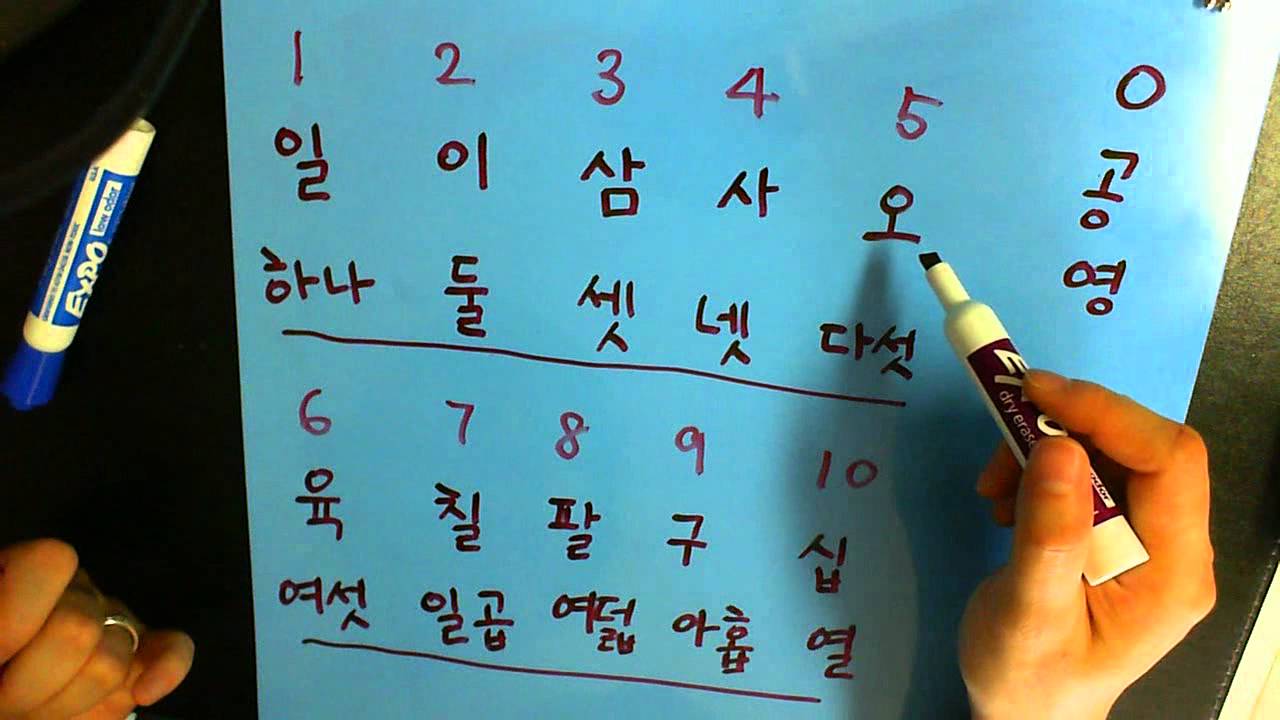 1 2 3 4 5 0
일 이 삼 사 오 공
하나 둘 셋 넷 다섯 영
6 7 8 9 10
육 칠 팔 구 십
여섯 일곱 여덟 아홉 열
EXPO
low odor
dry erase